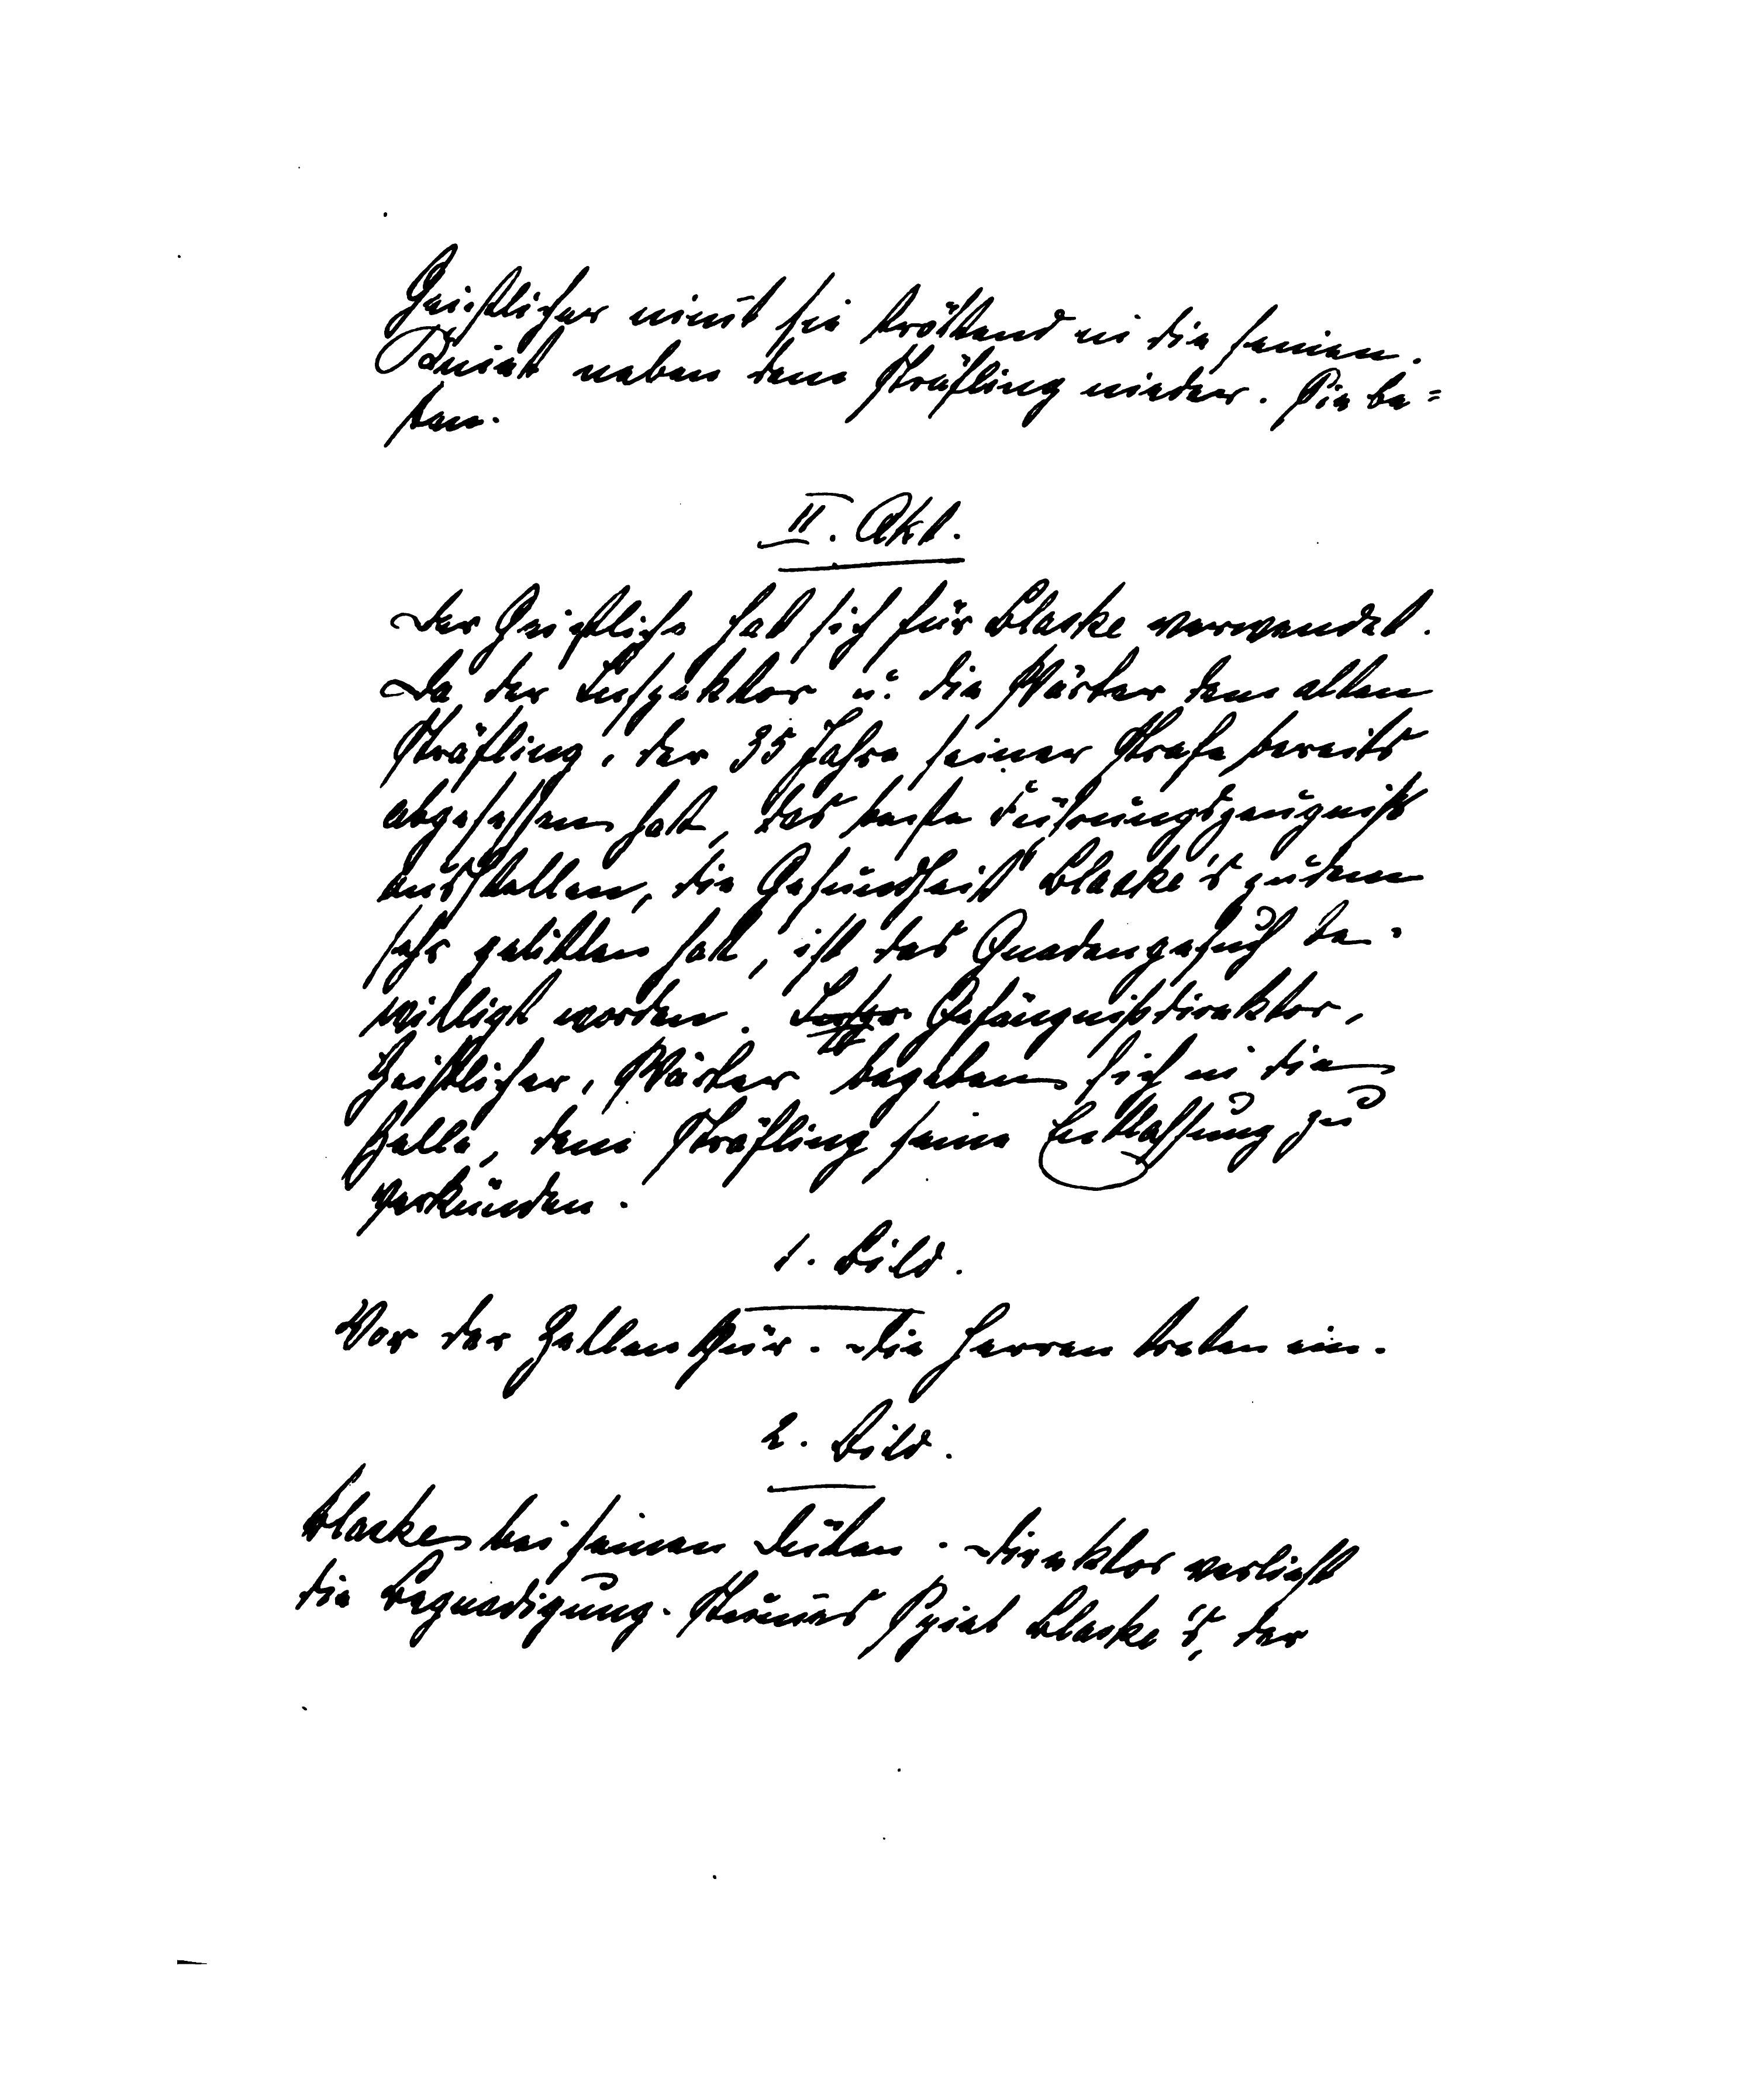 Geistlicher nim̄t sie tröstend in die seinen.
Kniet neben dem Sträfling nieder. Sie be=
ten.
II. Akt.
Der Geistliche hat sich für Blaske verwendet.
Da der Inspektor u. die Wärter dem alten
Sträfling, der 35 Jahre seiner Strafe bereits
abgesessen hat, das beste Führungszeugniß
ausstellen, die Gesundheit Blaske's zudem
sehr gelitten hat, ist das Gnadengesuch be-
willigt worden. Gefängnißdirektor,
Geistlicher, Wärter begeben sich in die
Zelle, dem Sträfling seine Entlassung zu
verkünden.
1. Bild.
Vor der Zellenthür. Die Herren treten ein.
2. Bild.
Blaske bei seinen Düten. Direktor verliest
die Begnadigung. Stum̄es Spiel Blaske's, der